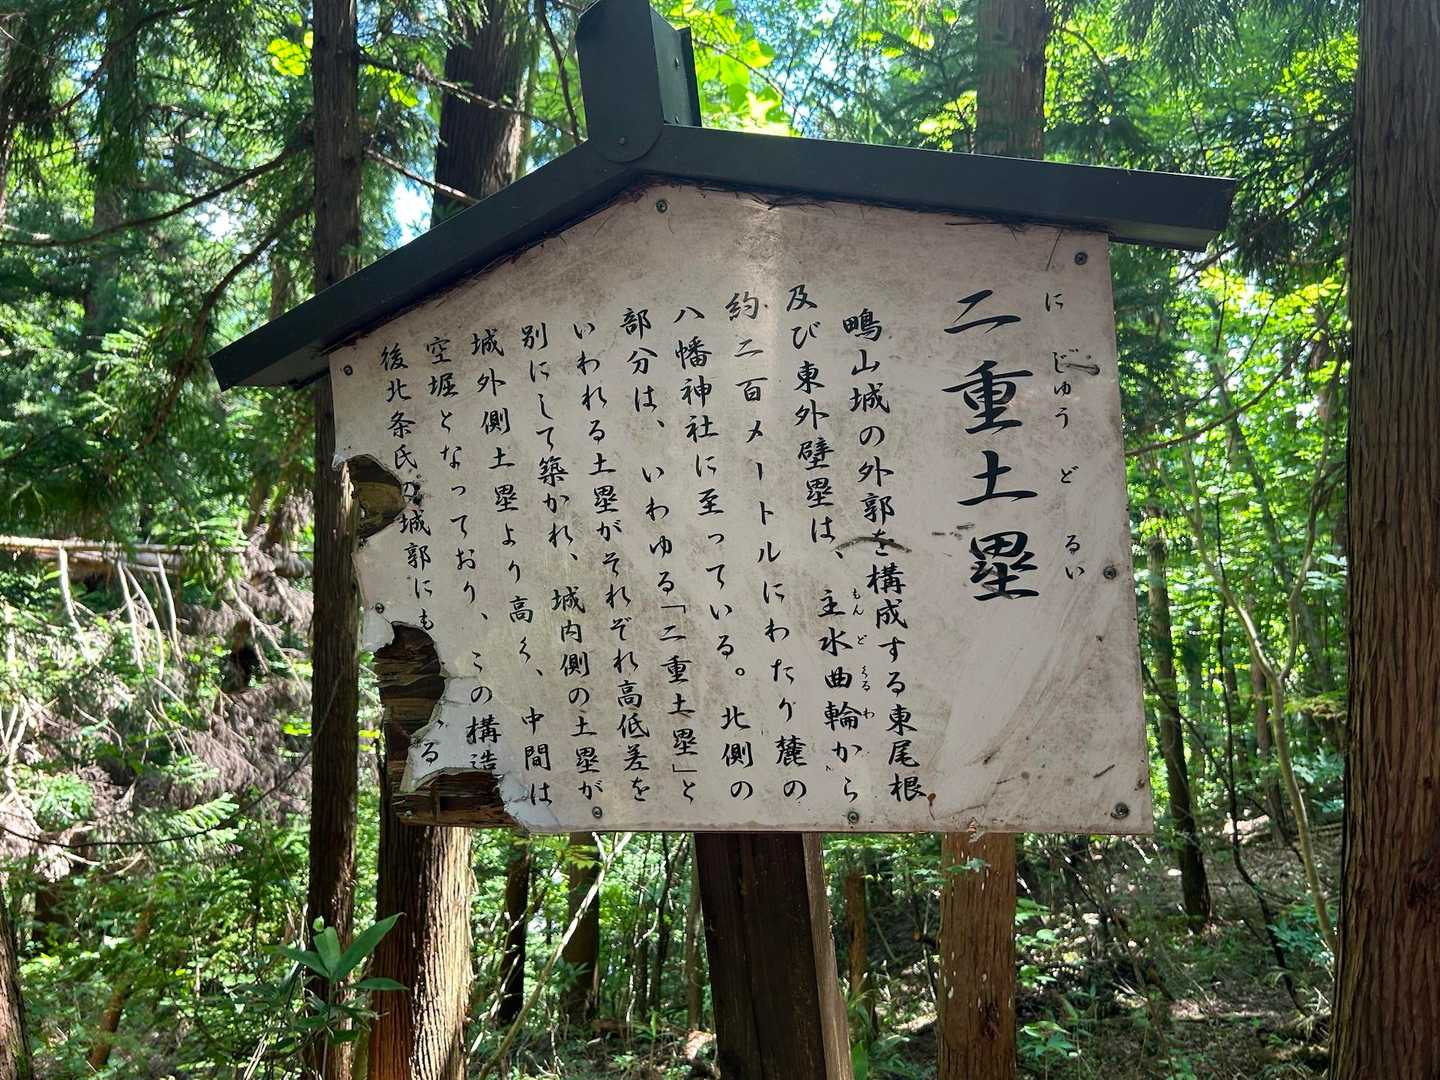 二重土塁
にじゅうどるい
鴫山城の外郭を構成する東尾根
及び東外壁塁は、主水曲輪から
もんどくるわ
約二百メートルにわたり麓の
八幡神社に至っている。北側の
部分は、いわゆる「二重土塁」と
いわれる土塁がそれぞれ高低差を
別にして築かれ、城内側の土塁が
城外側土塁より高く、中間は
空堀となっており、この構造
後北条氏の城郭にも る